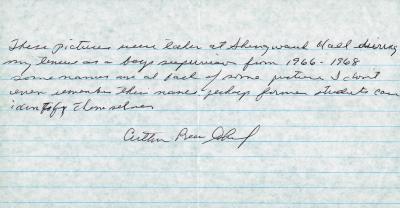 These pictures were taken at Shingwauk Hall during
my tenure as a boys supervisor from 1966 - 1968
some names are at back of some pictures I don't
even remember their names perhaps former students can
identify themselves
Arthur Bear Chief